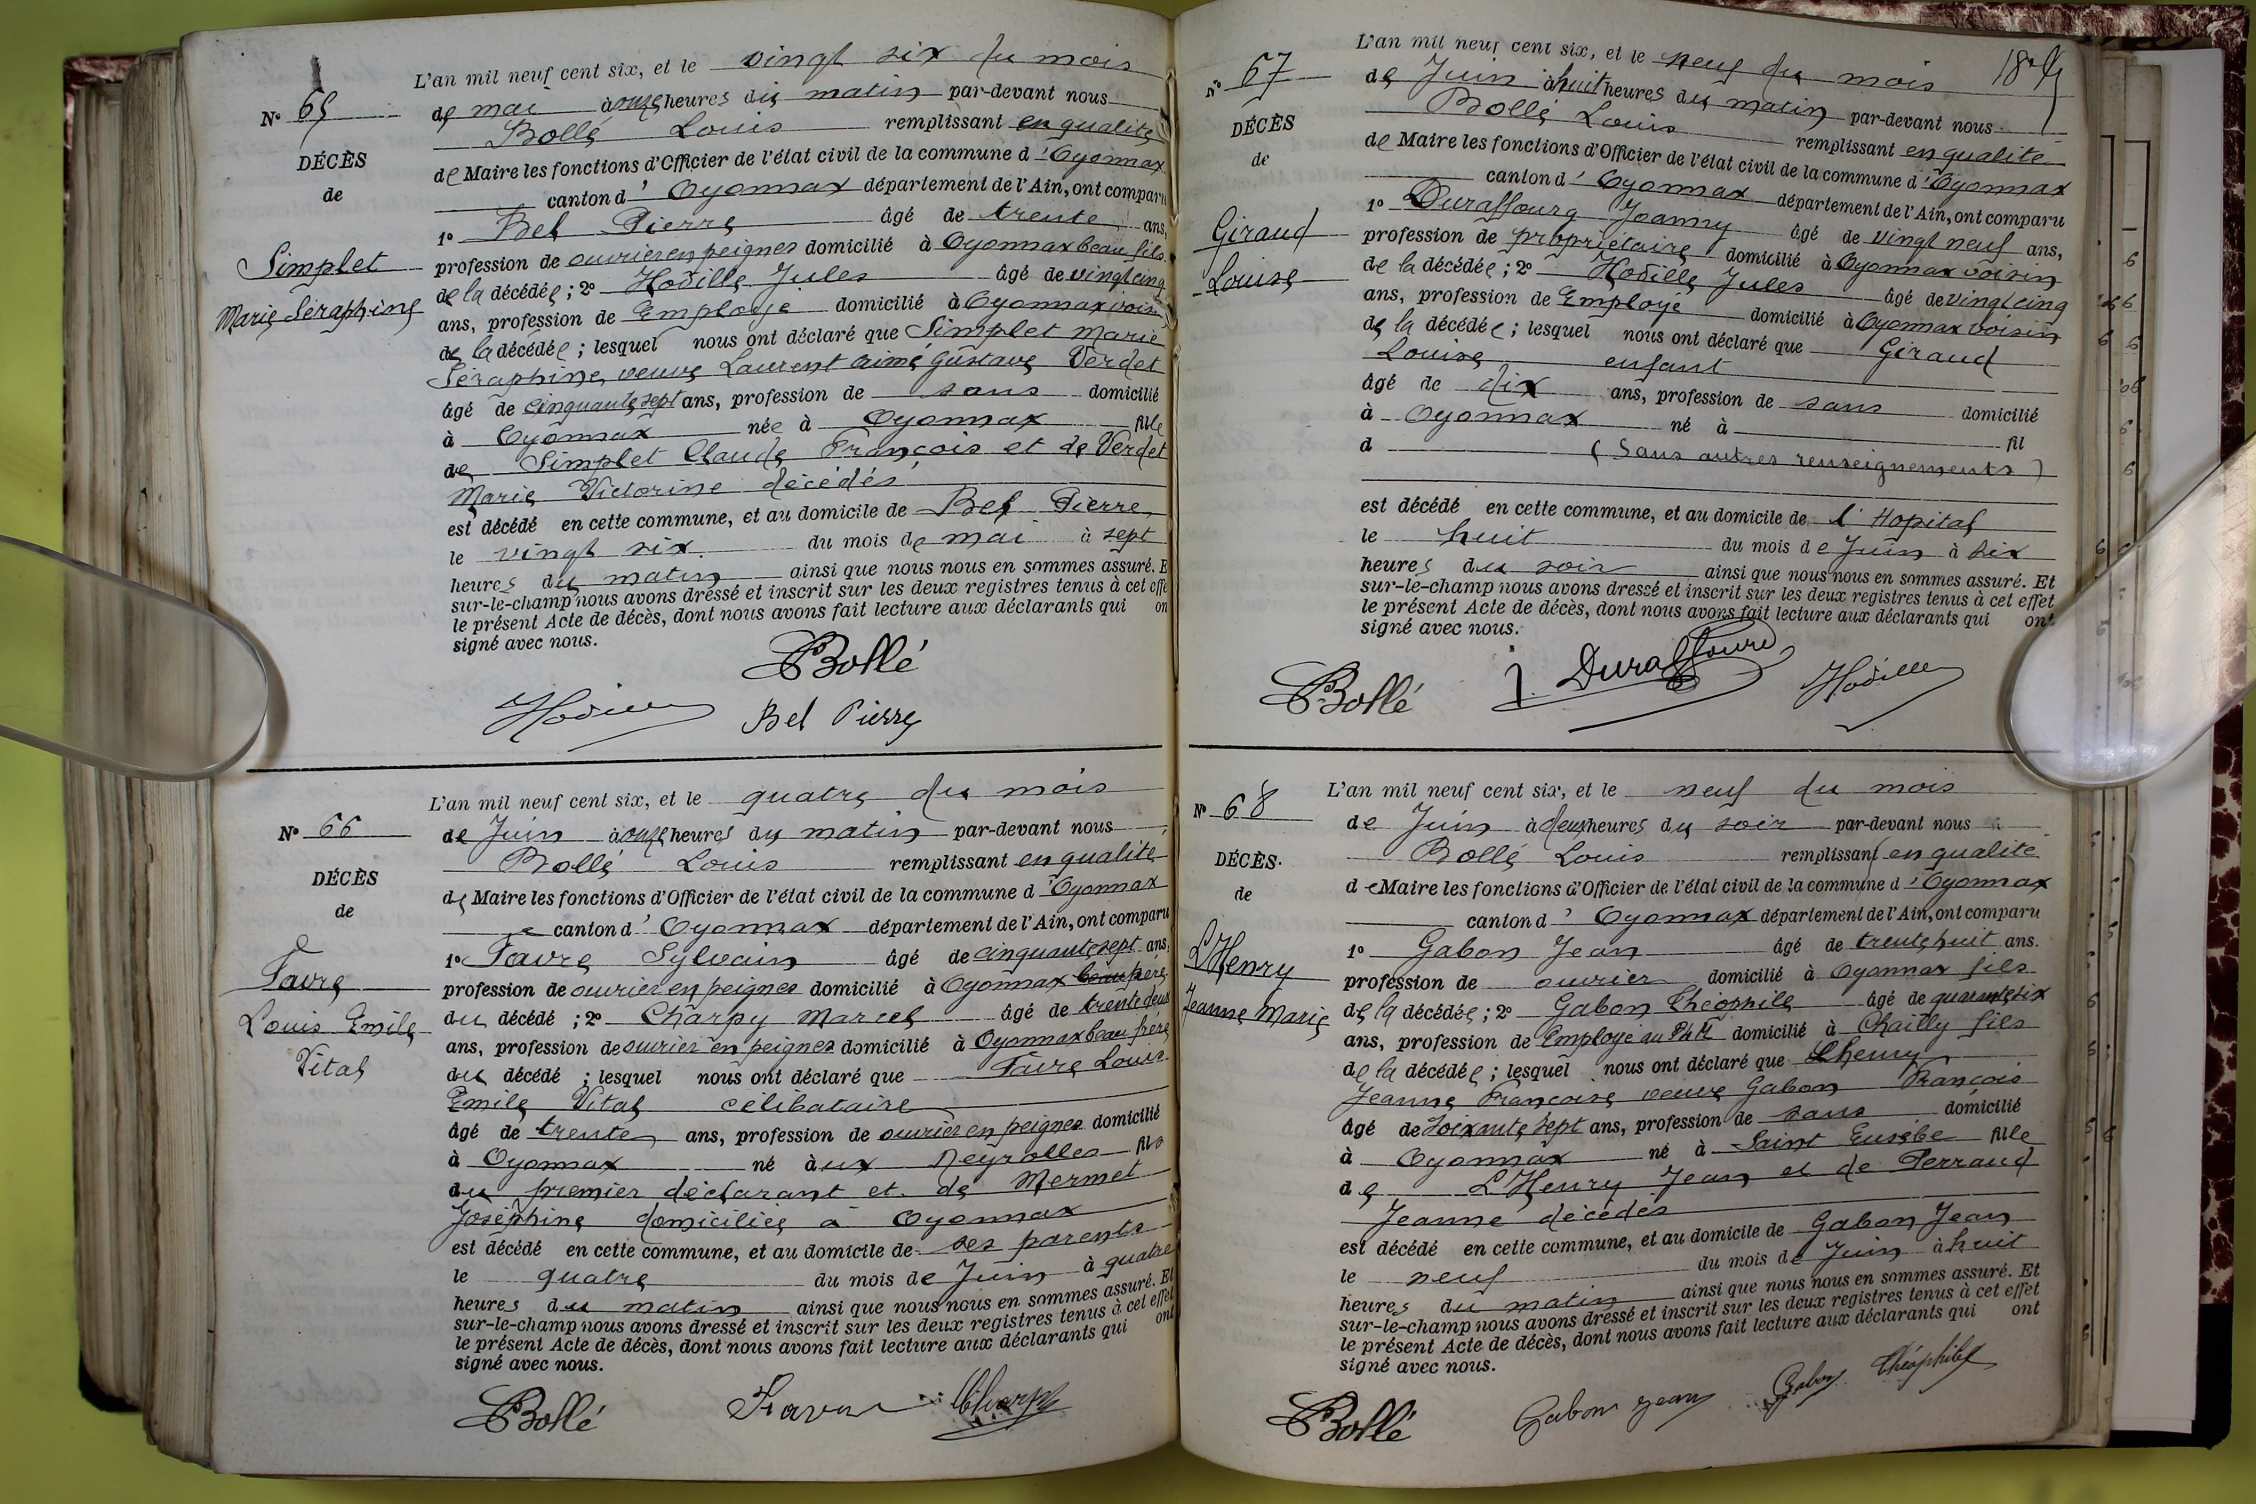 L'an mil neuf cent six, et le vingt six du mois
N° 65
de mai à onze heures du matin par-devant nous
Bollé Louis remplissant en qualité
DÉCÈS
de Maire les fonctions d'Officier de l'état civil de la commune d'Oyonnax
de
canton d'Oyonnax département de l'Ain, ont comparu
1° Bel Pierre âgé de trente ans,
Simplet
profession de ouvrier en peignes domicilié à Oyonnax beau fils
Marie Séraphine
de la décédée ; 2° Hodille Jules âgé de vingt cinq
ans, profession de Employé domicilié à Oyonnax voisin
de la décédée ; lesquel nous ont déclaré que Simplet Marie
Séraphine, veuve Laurent aimé Gustave Verdet
âgé de cinquante sept ans, profession de sans domicilié
à Oyonnax née à Oyonnax fille
de Simplet Claude François et de Verdet
Marie Victorine décédés
est décédé en cette commune, et au domicile de Bel Pierre
le vingt six du mois de mai à sept
heures du matin ainsi que nous nous en sommes assuré. E
sur-le-champ nous avons dressé et inscrit sur les deux registres tenus à cet effe
le présent Acte de décès, dont nous avons fait lecture aux déclarants qui on
signé avec nous.
Bollé
Hodille Bel Pierre
L'an mil neuf cent six, et le quatre du mois
N° 66
de Juin à onze heures du matin par-devant nous
Bollé Louis remplissant en qualité
DÉCÈS
de Maire les fonctions d'Officier de l'état civil de la commune d'Oyonnax
de
canton d'Oyonnax département de l'Ain, ont comparu
1° Favre Sylvain âgé de cinquante sept ans,
Favre
profession de ouvrier en peignes domicilié à Oyonnax beau père
Louis Emile
du décédé ; 2° Charpy Marcel âgé de trente deux
Vital
ans, profession de ouvrier en peignes domicilié à Oyonnax beau frère
du décédé ; lesquel nous ont déclaré que Favre Louis
Emile Vital célibataire
âgé de trente ans, profession de ouvrier en peignes domicilié
à Oyonnax né à ux Neyrolles fils
du premier déclarant et de Mermet
Joséphine domiciliée à Oyonnax
est décédé en cette commune, et au domicile de ses parents
le quatre du mois de Juin à quatre
heures du matin ainsi que nous nous en sommes assuré. Et
sur-le-champ nous avons dressé et inscrit sur les deux registres tenus à cet effet
le présent Acte de décès, dont nous avons fait lecture aux déclarants qui ont
signé avec nous.
Bollé Favre Charpy
L'an mil neuf cent six, et le neuf du mois
N° 67
de Juin à huit heures du matin par-devant nous
Bollé Louis remplissant en qualité
DÉCÈS
de Maire les fonctions d'Officier de l'état civil de la commune d'Oyonnax
de
canton d'Oyonnax département de l'Ain, ont comparu
1° Duraffourg Joanny âgé de vingt neuf ans,
Giraud
profession de propriétaire domicilié à Oyonnax voisin
Louise
de la décédée ; 2° Hodille Jules âgé de vingt cinq
ans, profession de Employé domicilié à Oyonnax voisin
de la décédée ; lesquel nous ont déclaré que Giraud
Louise enfant
âgé de dix ans, profession de sans domicilié
à Oyonnax né à
d fil
(Sans autres renseignements)
est décédé en cette commune, et au domicile de l'Hopital
le huit du mois de Juin à six
heures du soir ainsi que nous nous en sommes assuré. Et
sur-le-champ nous avons dressé et inscrit sur les deux registres tenus à cet effet
le présent Acte de décès, dont nous avons fait lecture aux déclarants qui ont
signé avec nous.
Bollé J. Duraffourg Hodille
L'an mil neuf cent six, et le neuf du mois
N° 68
de Juin à deux heures du soir par-devant nous
Bollé Louis remplissant en qualité
DÉCÈS
de Maire les fonctions d'Officier de l'état civil de la commune d'Oyonnax
de
canton d'Oyonnax département de l'Ain, ont comparu
1° Gabon Jean âgé de trente huit ans.
L'Henry
profession de ouvrier domicilié à Oyonnax fils
Jeanne Marie
de la décédée ; 2° Gabon Théophile âgé de quarante six
ans, profession de Employé au PLM domicilié à Chailly fils
de la décédée ; lesquel nous ont déclaré que Lhenry
Jeanne Françoise veuve Gabon François
âgé de Soixante sept ans, profession de sans domicilié
à Oyonnax né à Saint Eusèbe fille
de L'Henry Jean et de Perraud
Jeanne décédés
est décédé en cette commune, et au domicile de Gabon Jean
le neuf du mois de Juin à huit
heures du matin ainsi que nous nous en sommes assuré. Et
sur-le-champ nous avons dressé et inscrit sur les deux registres tenus à cet effet
le présent Acte de décès, dont nous avons fait lecture aux déclarants qui ont
signé avec nous.
Bollé Gabon Jean Gabon Théophile